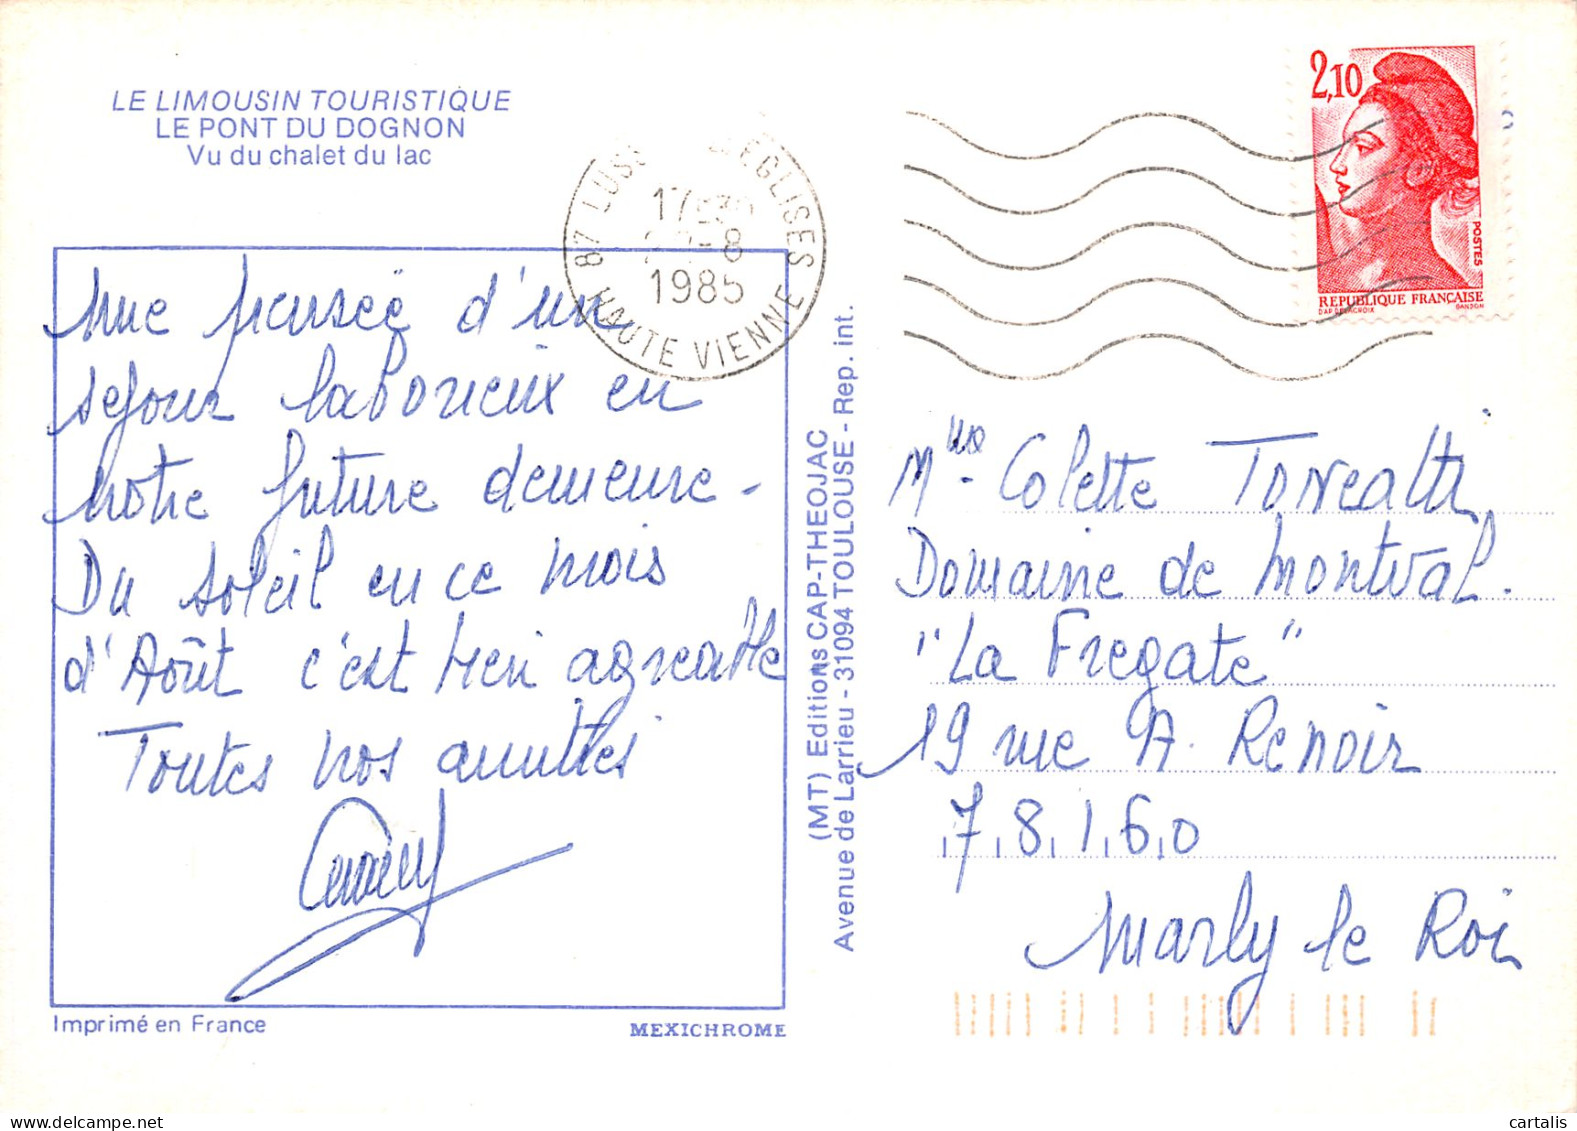 LE LIMOUSIN TOURISTIQUE
LE PONT DU DOGNON
Vu du chalet du lac
87 LUSS EGLISES
17
8
1985
HAUTE VIENNE
2,10
POSTES
REPUBLIQUE FRANÇAISE
D'AP. DELACROIX GANDON
Une pensée d'un
séjour laborieux en
notre future demeure -
Du soleil en ce mois
d'Août c'est bien agréable
Toutes nos amitiés
Imprimé en France
MEXICHROME
(MT) Editions CAP-THEOJAC
Avenue de Larrieu - 31094 TOULOUSE - Rep. int.
Colette
Domaine de Montval.
"La Fregate"
19 rue A. Renoir
78160
Marly le Roi
cartalis